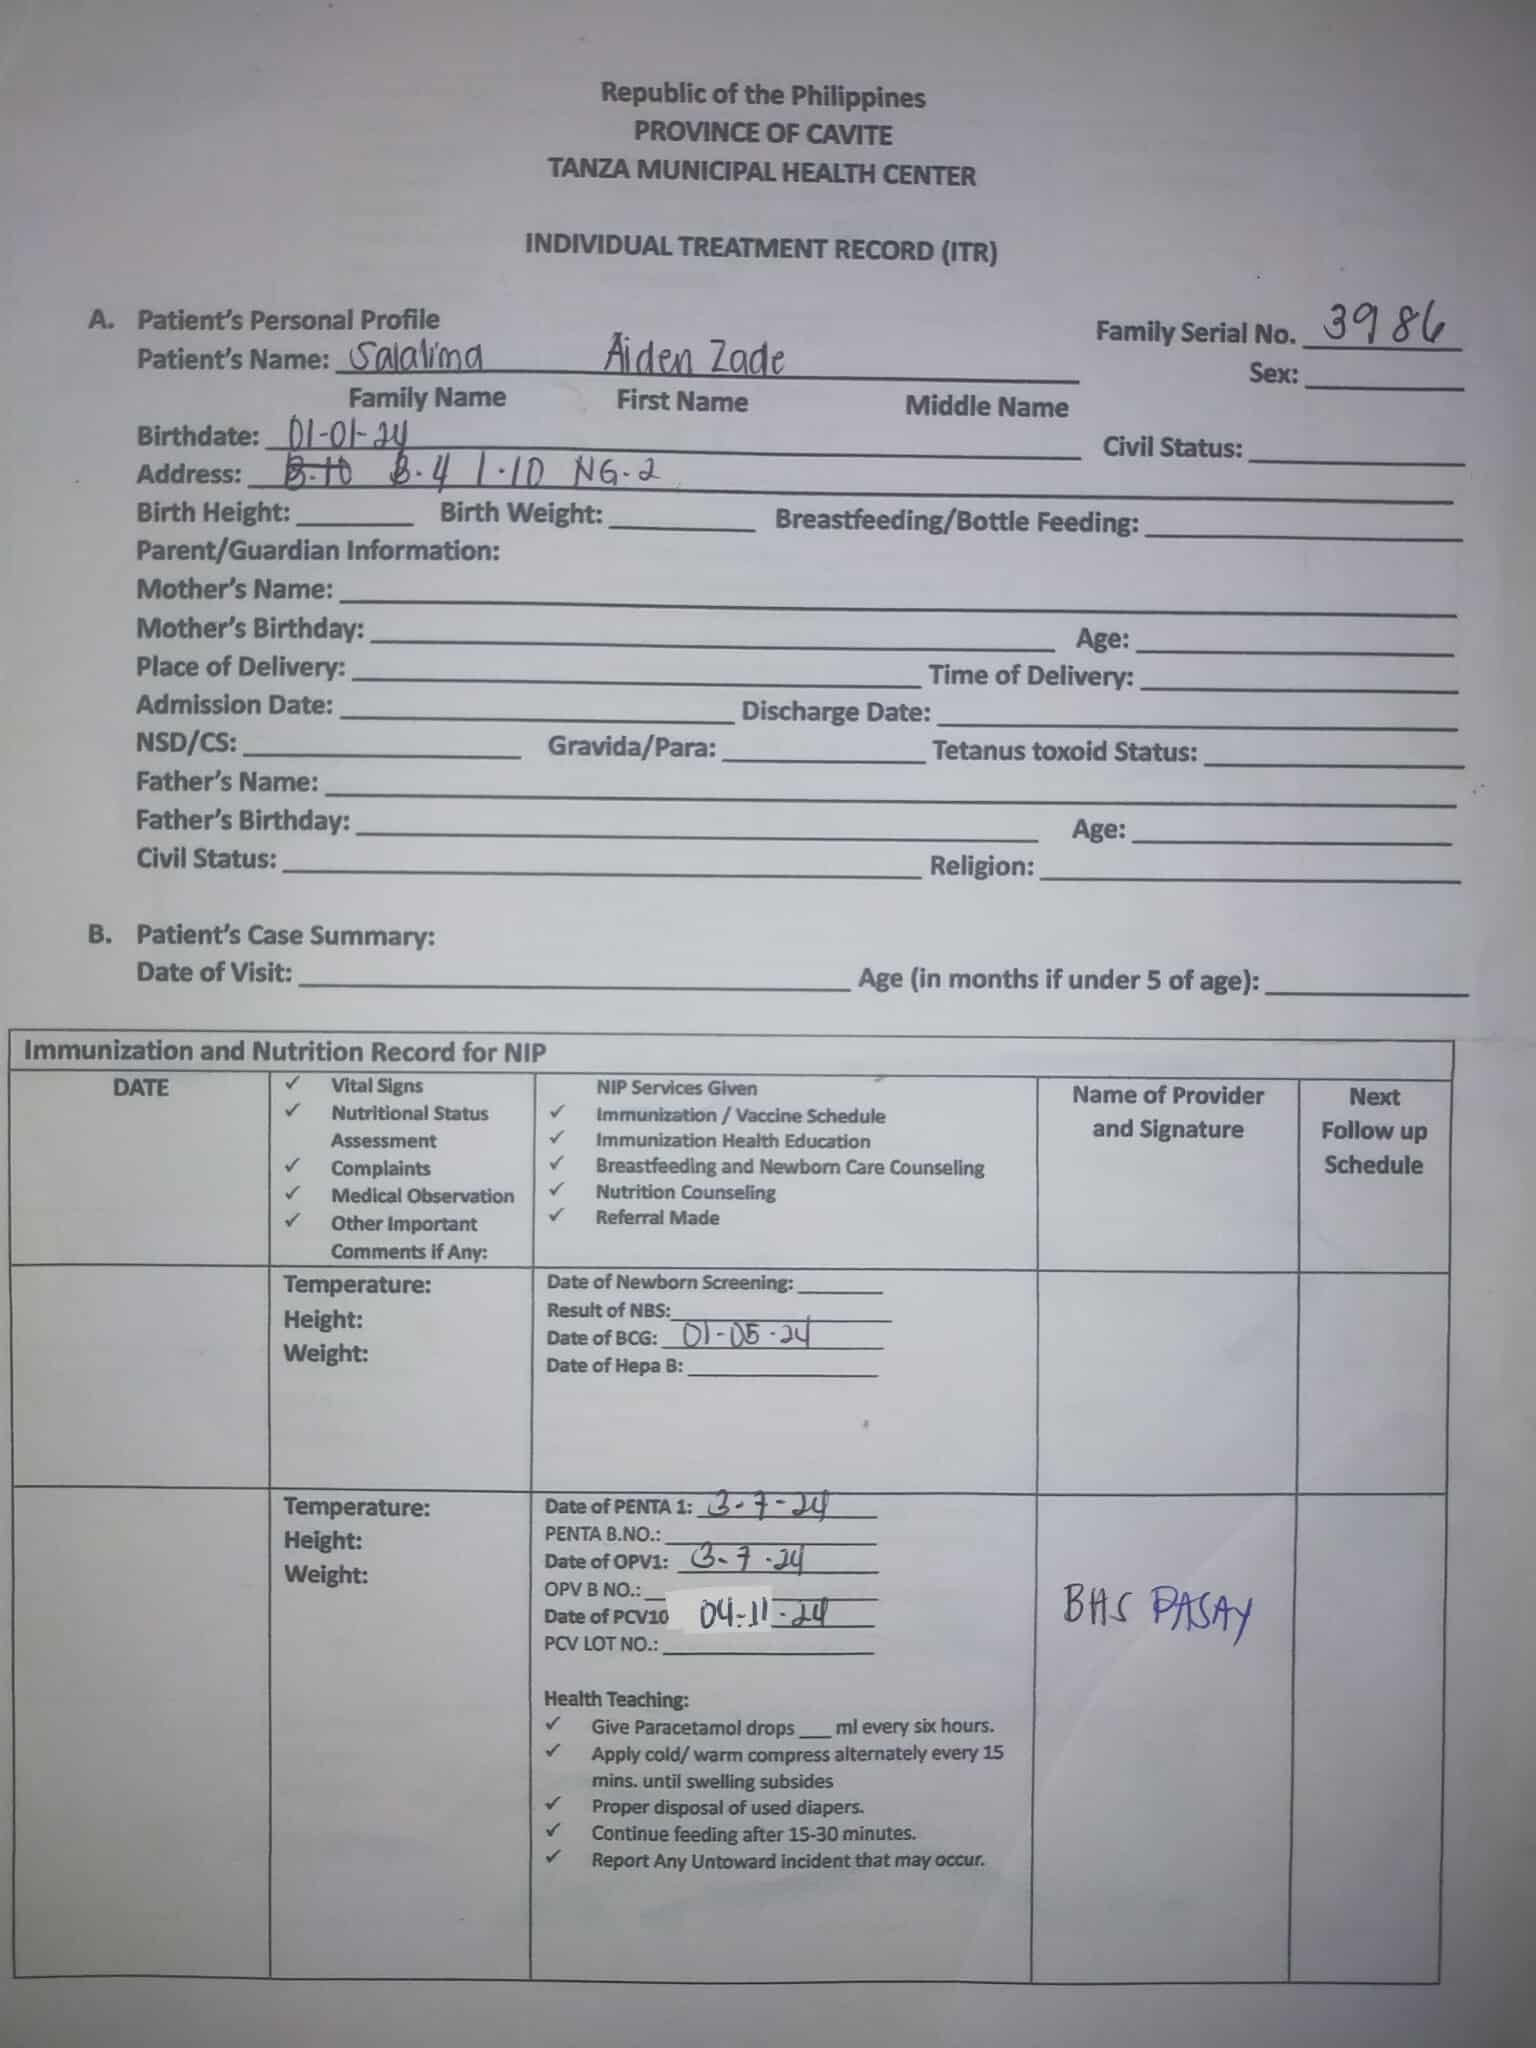 Republic of the Philippines
PROVINCE OF CAVITE
TANZA MUNICIPAL HEALTH CENTER
INDIVIDUAL TREATMENT RECORD (ITR)
A. Patient's Personal Profile
Family Serial No. 3986
Patient's Name: Salalima Aiden Zade
Sex:
Family Name First Name Middle Name
Birthdate: 01-01-24
Civil Status:
Address: B-10 B-4 l-10 NG-2
Birth Height: Birth Weight: Breastfeeding/Bottle Feeding:
Parent/Guardian Information:
Mother's Name:
Mother's Birthday: Age:
Place of Delivery: Time of Delivery:
Admission Date: Discharge Date:
NSD/CS: Gravida/Para: Tetanus toxoid Status:
Father's Name:
Father's Birthday: Age:
Civil Status: Religion:
B. Patient's Case Summary:
Date of Visit: Age (in months if under 5 of age):
Immunization and Nutrition Record for NIP
DATE
✓ Vital Signs
✓ Nutritional Status
Assessment
✓ Complaints
✓ Medical Observation
✓ Other Important
Comments if Any:
NIP Services Given
✓ Immunization / Vaccine Schedule
✓ Immunization Health Education
✓ Breastfeeding and Newborn Care Counseling
✓ Nutrition Counseling
✓ Referral Made
Name of Provider
and Signature
Next
Follow up
Schedule
Temperature:
Height:
Weight:
Date of Newborn Screening:
Result of NBS:
Date of BCG: 01-05-24
Date of Hepa B:
Temperature:
Height:
Weight:
Date of PENTA 1: 3-7-24
PENTA B.NO.:
Date of OPV1: 3-7-24
OPV B NO.:
Date of PCV10 04-11-24
PCV LOT NO.:
Health Teaching:
✓ Give Paracetamol drops ___ ml every six hours.
✓ Apply cold/ warm compress alternately every 15
mins. until swelling subsides
✓ Proper disposal of used diapers.
✓ Continue feeding after 15-30 minutes.
✓ Report Any Untoward incident that may occur.
BHS PASAY